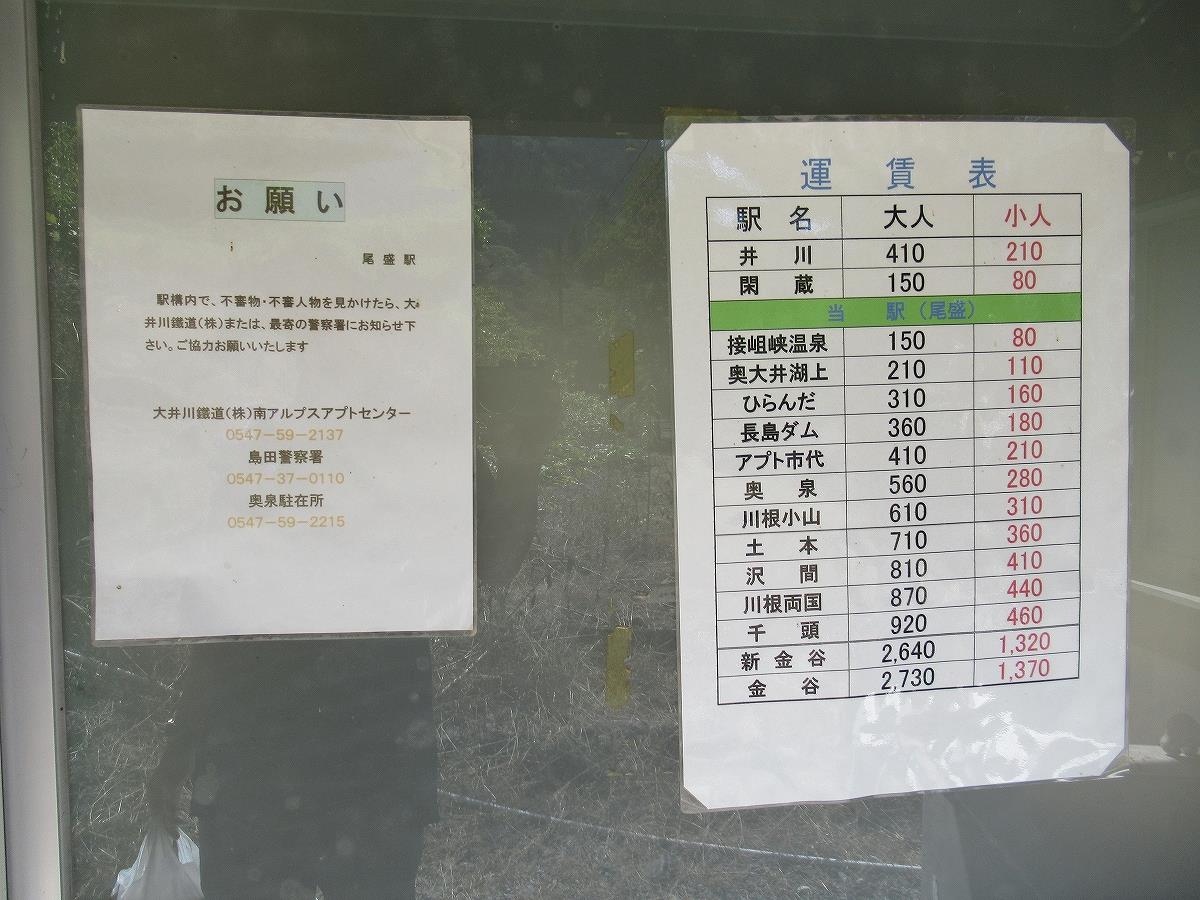 お願い
尾盛駅
駅構内で、不審物・不審人物を見かけたら、大
井川鐵道(株)または、最寄の警察署にお知らせ下
さい。ご協力お願いいたします
大井川鐵道(株)南アルプスアプトセンター
0547-59-2137
島田警察署
0547-37-0110
奥泉駐在所
0547-59-2215
運賃表
駅名 大人 小人
井川 410 210
閑蔵 150 80
当駅(尾盛)
接岨峡温泉 150 80
奥大井湖上 210 110
ひらんだ 310 160
長島ダム 360 180
アプト市代 410 210
奥泉 560 280
川根小山 610 310
土本 710 360
沢間 810 410
川根両国 870 440
千頭 920 460
新金谷 2,640 1,320
金谷 2,730 1,370